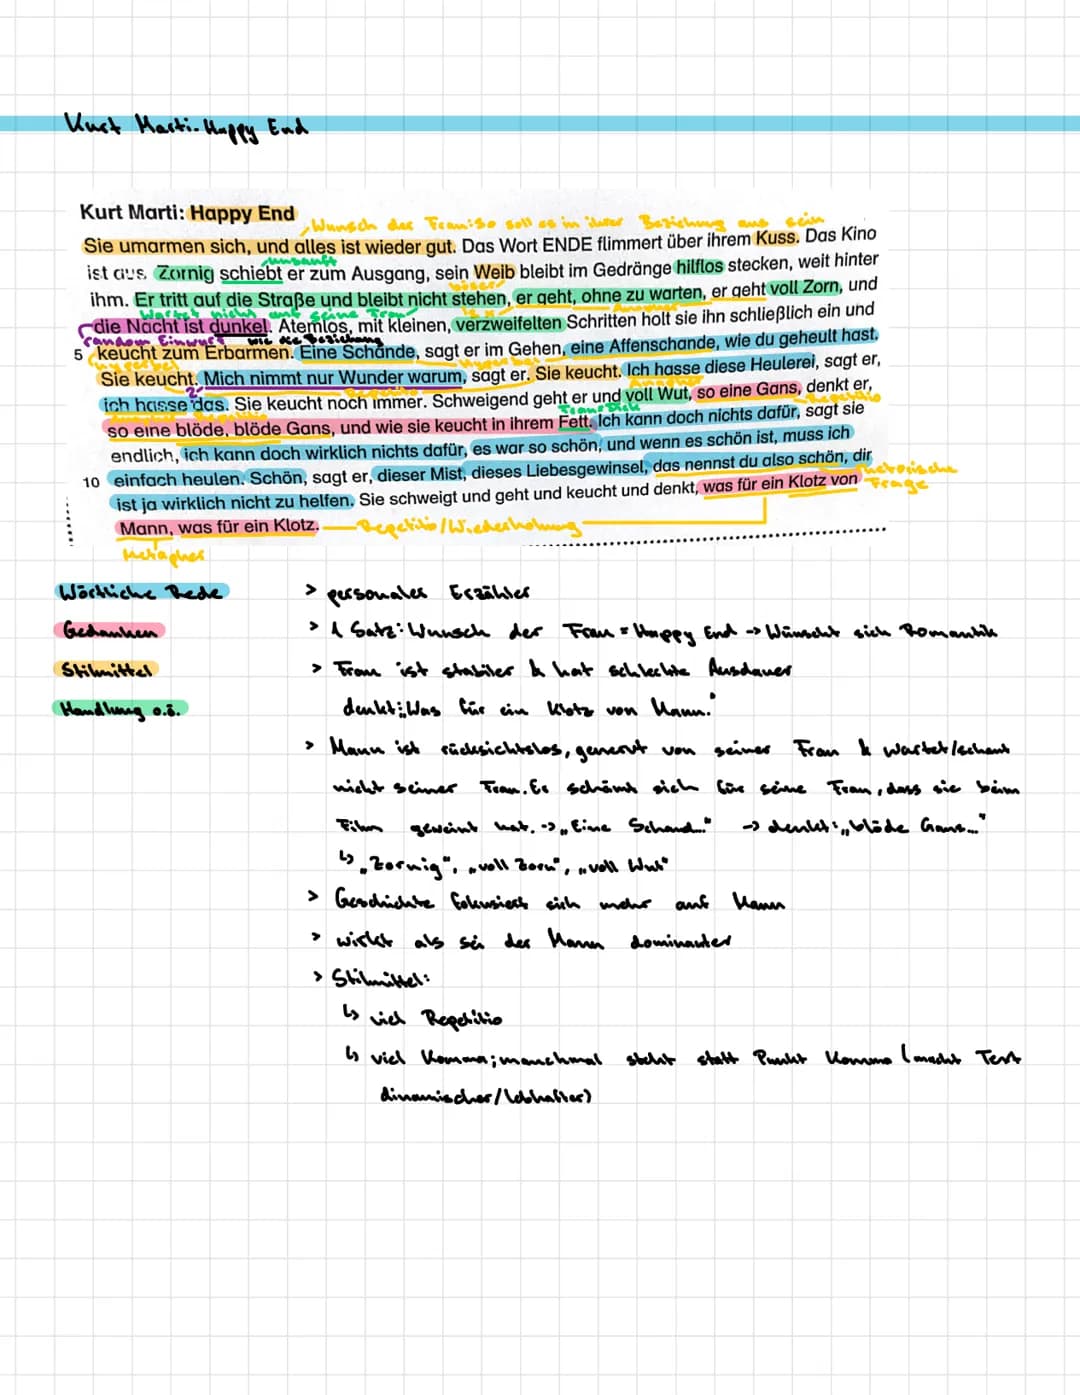 Kurt Marti - Happy End
Kurt Marti: Happy End
Wunsch der Frau: So soll es in ihrer Beziehung aus sein
Sie umarmen sich, und alles ist wieder gut. Das Wort ENDE flimmert über ihrem Kuss. Das Kino
unsanft
ist aus. Zornig schiebt er zum Ausgang, sein Weib bleibt im Gedränge hilflos stecken, weit hinter
böser
ihm. Er tritt auf die Straße und bleibt nicht stehen, er geht, ohne zu warten, er geht voll Zorn, und
wartet nicht auf seine Frau
die Nacht ist dunkel. Atemlos, mit kleinen, verzweifelten Schritten holt sie ihn schließlich ein und
random Einwurf wie die Beziehung
5 keucht zum Erbarmen. Eine Schande, sagt er im Gehen, eine Affenschande, wie du geheult hast.
Hyperbel
Sie keucht. Mich nimmt nur Wunder warum, sagt er. Sie keucht. Ich hasse diese Heulerei, sagt er,
ich hasse das. Sie keucht noch immer. Schweigend geht er und voll Wut, so eine Gans, denkt er,
Frau = Dick
so eine blöde, blöde Gans, und wie sie keucht in ihrem Fett. Ich kann doch nichts dafür, sagt sie
endlich, ich kann doch wirklich nichts dafür, es war so schön, und wenn es schön ist, muss ich
10 einfach heulen. Schön, sagt er, dieser Mist, dieses Liebesgewinsel, das nennst du also schön, dir
ist ja wirklich nicht zu helfen. Sie schweigt und geht und keucht und denkt, was für ein Klotz von
rhetorische Frage
Mann, was für ein Klotz.
Repetitio/Wiederholung
Metapher
Wörtliche Rede
Gedanken
Stilmittel
Handlung o.ä.
> personaler Erzähler
> 1 Satz: Wunsch der Frau = Happy End -> Wünscht sich Romantik
> Frau ist stabiler & hat schlechte Ausdauer
denkt: „Was für ein Klotz von Mann."
> Mann ist rücksichtslos, genervt von seiner Frau & wartet/schaut
nicht seiner Frau. Er schämt sich für seine Frau, dass sie beim
Film geweint hat. -> „Eine Schand..." -> denkt: „blöde Gans..."
↳ „Zornig", „voll Zorn", „voll Wut"
> Geschichte fokusiert sich mehr auf Mann
> wirkt als sei der Mann dominanter
> Stilmittel:
↳ viel Repetitio
↳ viel Komma; manchmal steht statt Punkt Komma (macht Text
dinamischer/lebhafter)